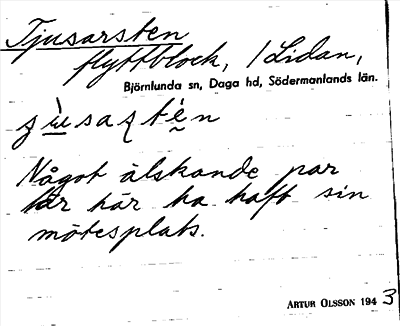 Tjusarsten
flyttblock, /Lidan,
Björnlunda sn, Daga hd, Södermanlands län.
Något älskande par
lär här ha haft sin
mötesplats.
ARTUR OLSSON 1943